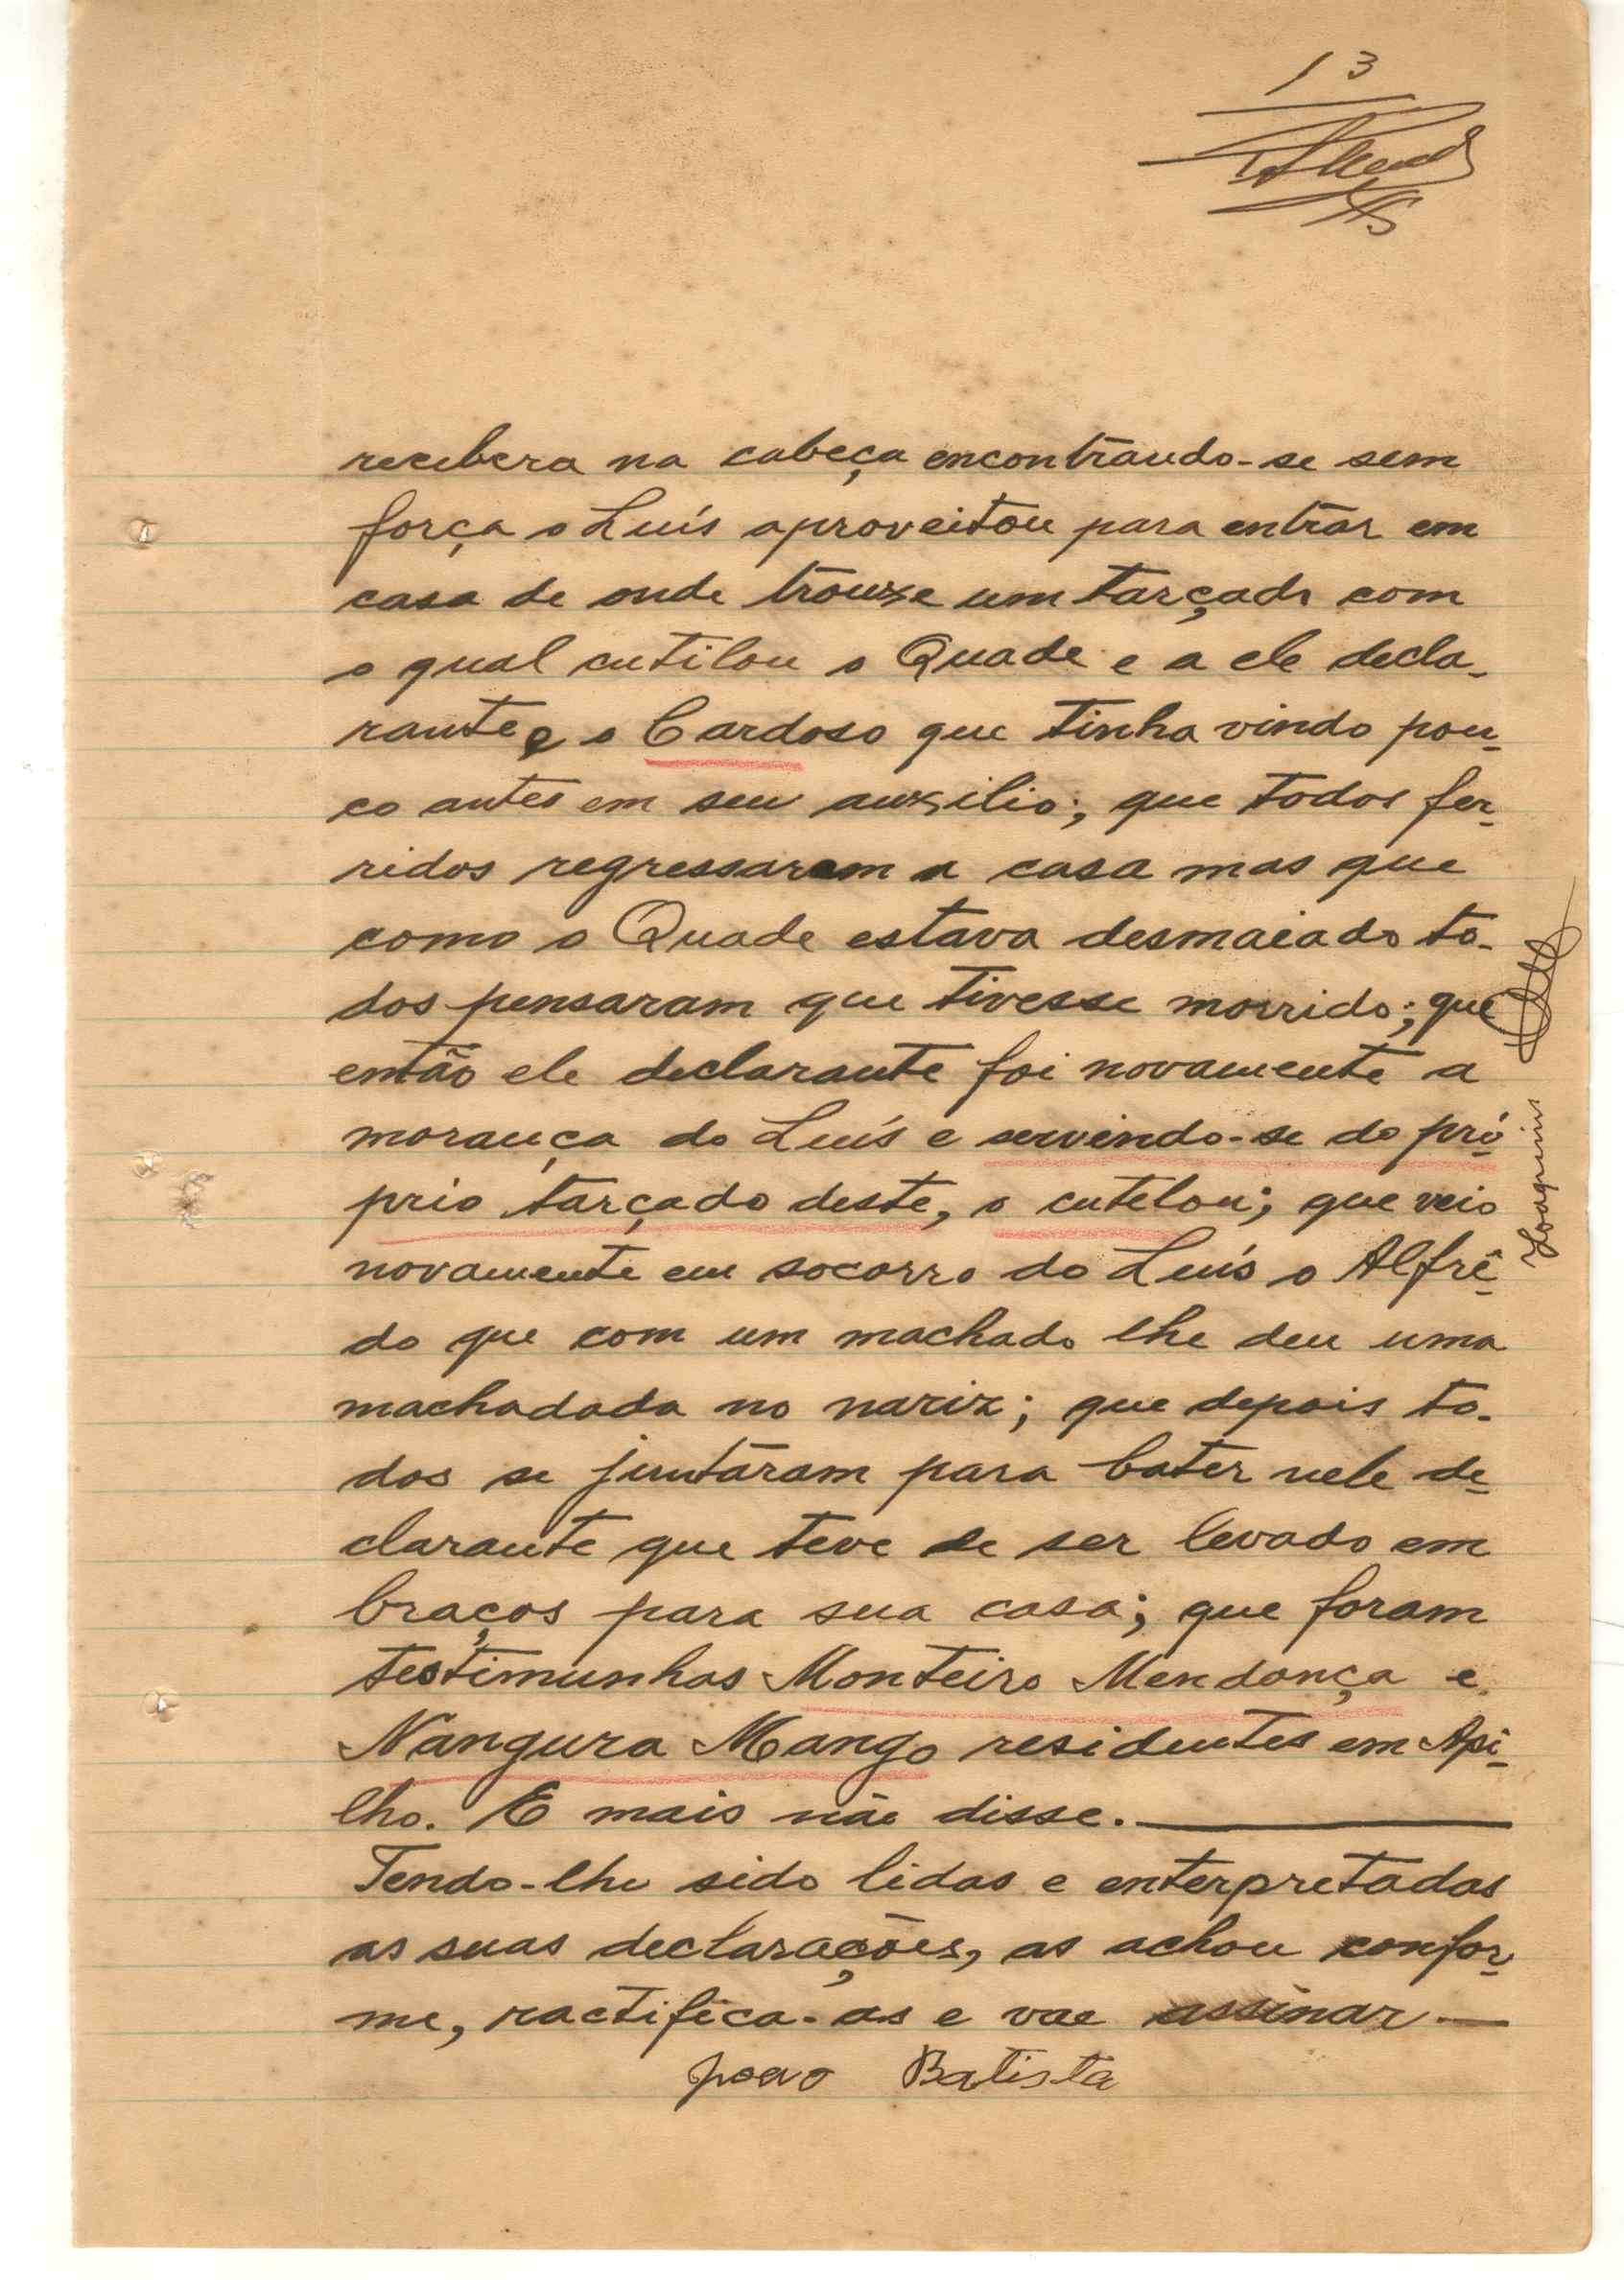 13
recebera na cabeça encontrando-se sem
força o Luís aproveitou para entrar em
casa de onde trouxe um tarçado com
o qual cutilou o Quade e a ele decla-
rante e o Cardoso que tinha vindo pou-
co antes em seu auxilio; que todos fer-
ridos regressaram a casa mas que
como o Quade estava desmaiado to-
dos pensaram que tivesse morrido; que
então ele declarante foi novamente a
morança do Luís e servindo-se do pró-
prio tarçado deste, o cutelou; que veio
novamente em socorro do Luís o Alfrê-
do que com um machado lhe deu uma
machadada no nariz; que depois to-
dos se juntaram para bater nele de-
clarante que teve de ser levado em
braços para sua casa; que foram
testimunhas Monteiro Mendonça e
Nangura Mango residentes em Api-
lho. E mais não disse.
Tendo-lhe sido lidas e enterpretadas
as suas declarações, as achou confor-
me, ractifica-as e vae assinar
Joao Batista
Joaquim